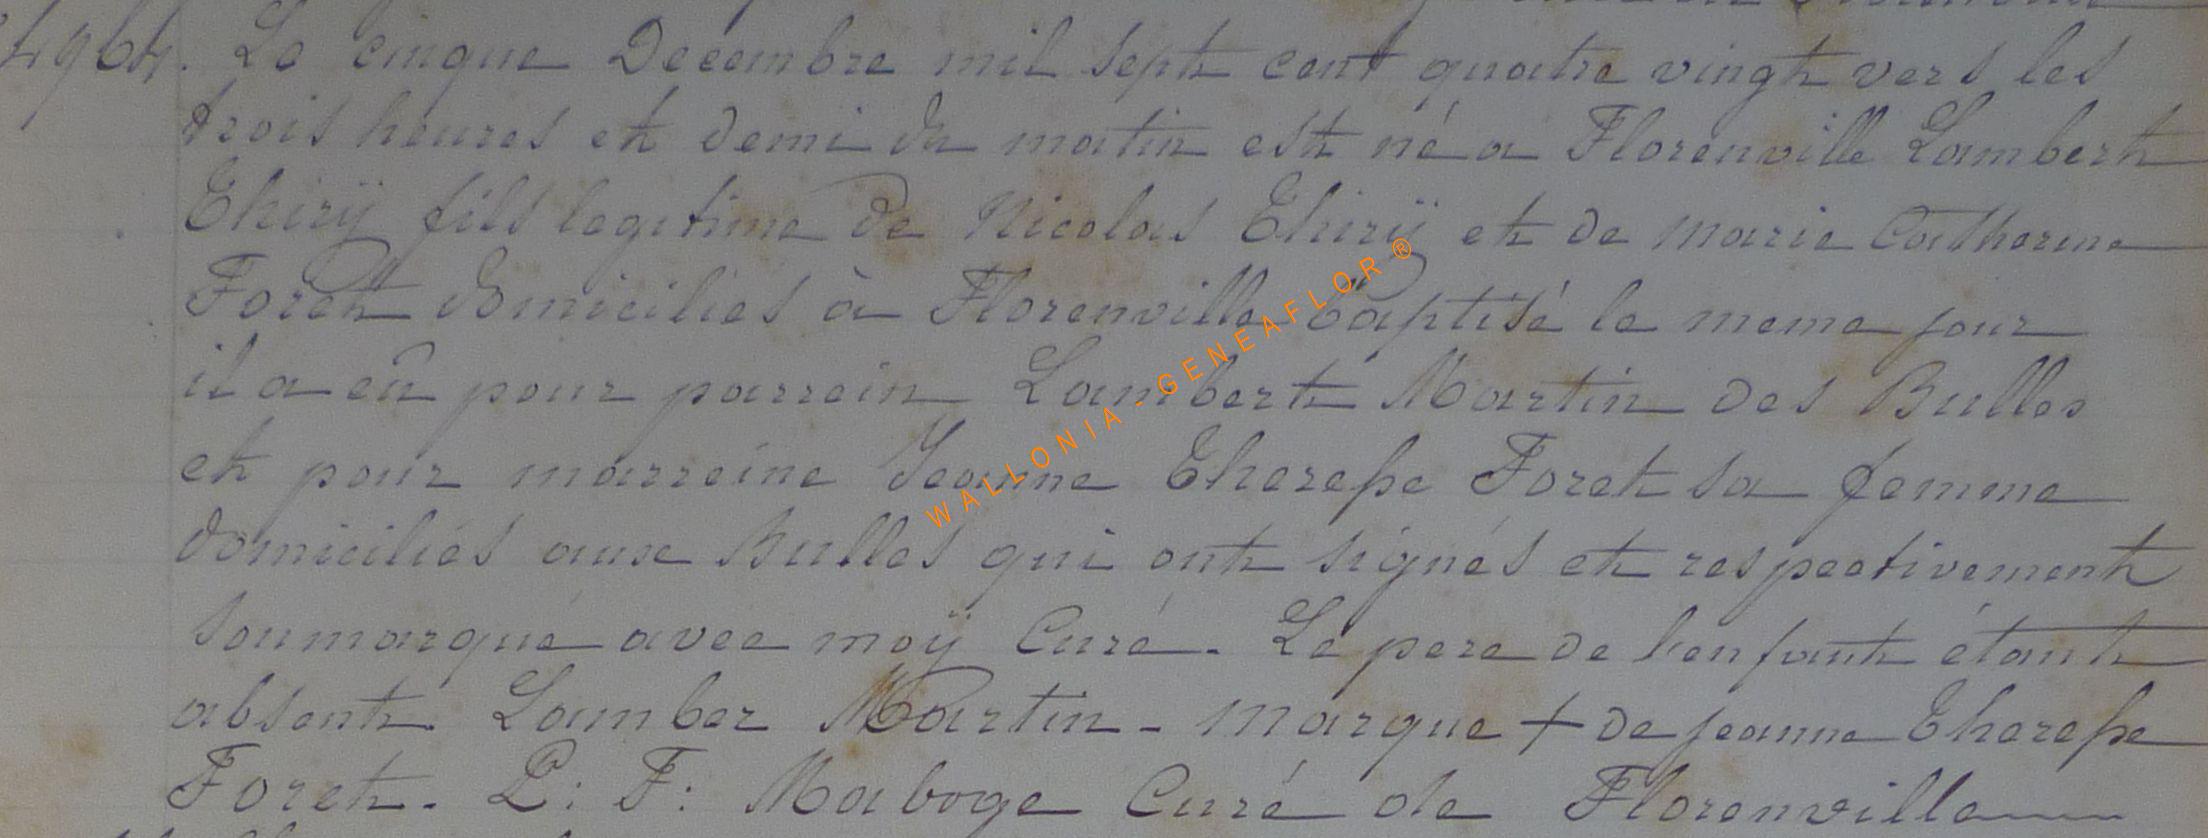 4964. Le cinque Decembre mil sept cent quatre vingt vers les
trois heures et demi du matin est né a Florenville Lambert
Thirÿ fils legitime de Nicolas Thirÿ et de marie Catherine
Foret domiciliés à Florenville baptisé le meme jour
il a eû pour parrein Lambert Martin des Bulles
et pour marreine Jeanne Therese Foret sa femme
domiciliés aux Bulles qui ont signés et respectivement
soumarqué avec moÿ Curé. Le pere de l'enfant étant
absent. Lamber Martin - marque + de jeanne Therese
Foret. P: F: Maboge Curé de Florenville
WALLONIA - GENEAFLOR ®